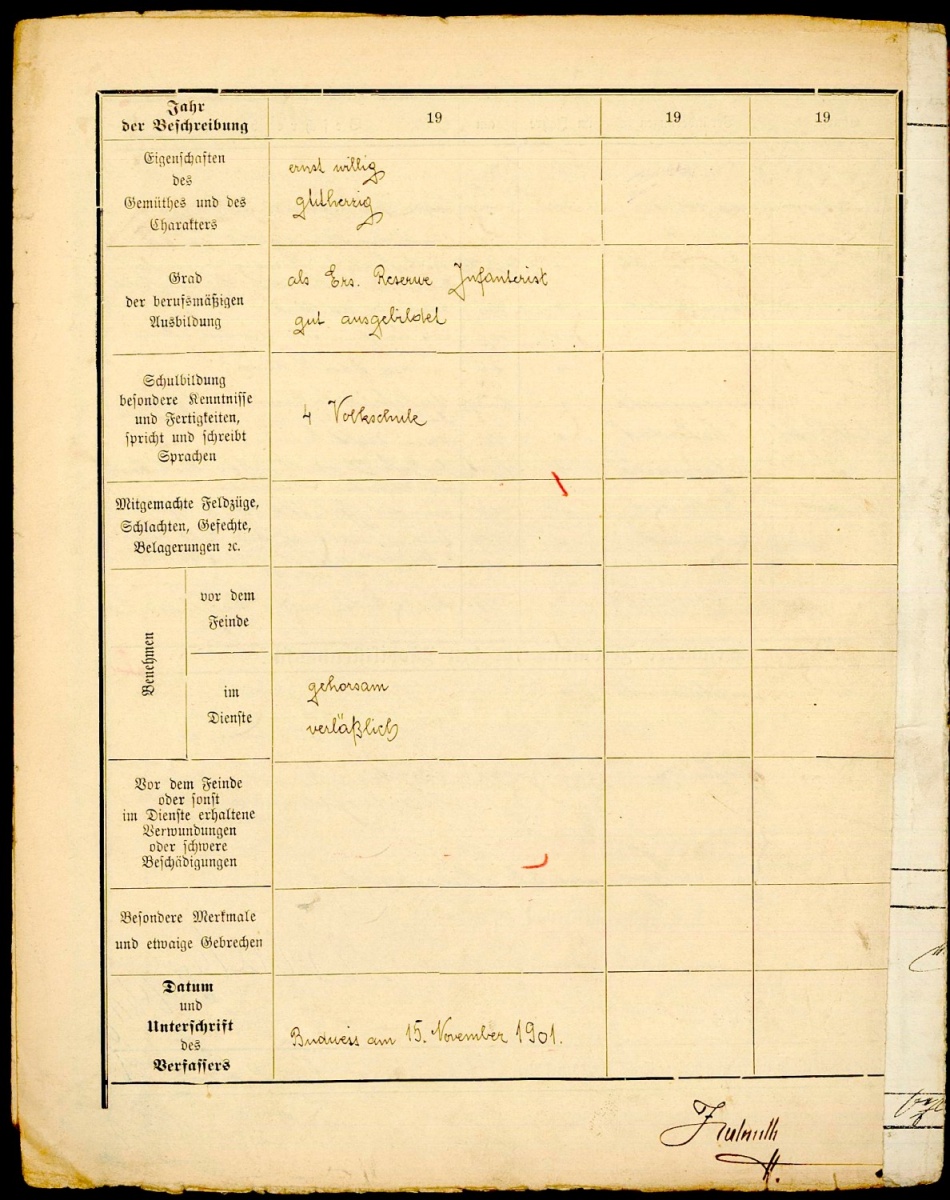 Jahr
der Beschreibung
19
19
19
Eigenschaften
des
Gemüthes und des
Charakters
ernst willig
gutherzig
Grad
der berufsmäßigen
Ausbildung
als Ers. Reserve Infanterist
gut ausgebildet
Schulbildung
besondere Kenntnisse
und Fertigkeiten,
spricht und schreibt
Sprachen
4 Volksschule
Mitgemachte Feldzüge,
Schlachten, Gefechte,
Belagerungen ꝛc.
Benehmen
vor dem
Feinde
im
Dienste
gehorsam
verläßlich
Vor dem Feinde
oder sonst
im Dienste erhaltene
Verwundungen
oder schwere
Beschädigungen
Besondere Merkmale
und etwaige Gebrechen
Datum
und
Unterschrift
des
Verfassers
Budweis am 15. November 1901.